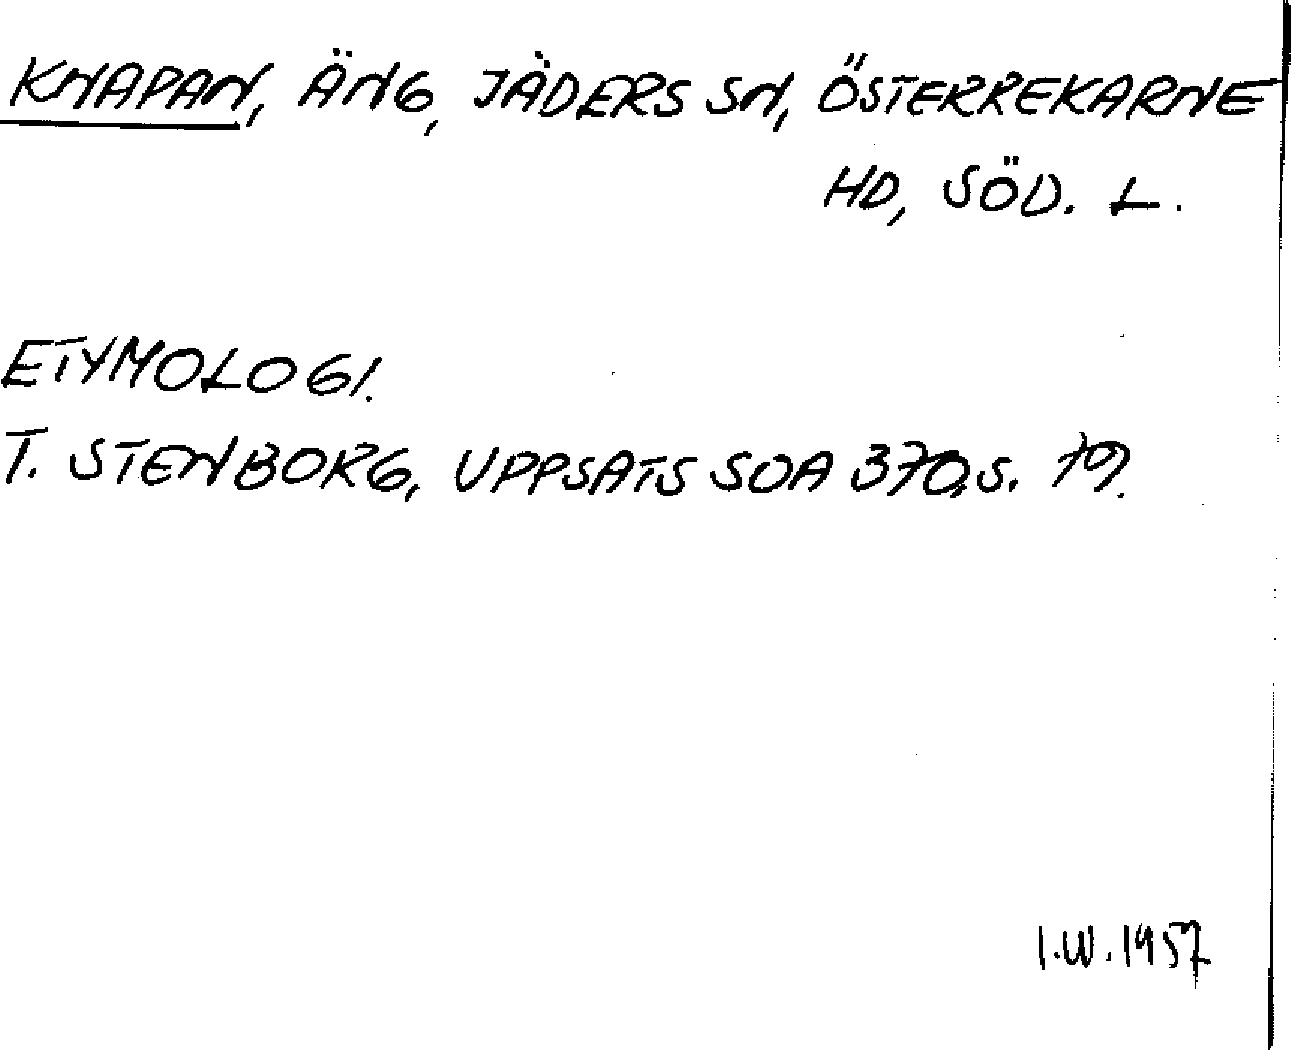 KNAPAN, ÄNG, JÄDERS SN, ÖSTERREKARNE
HD, SÖD. L.
ETYMOLOGI.
T. STENBORG, UPPSATS SOA 370, S. 79.
I.W. 1957